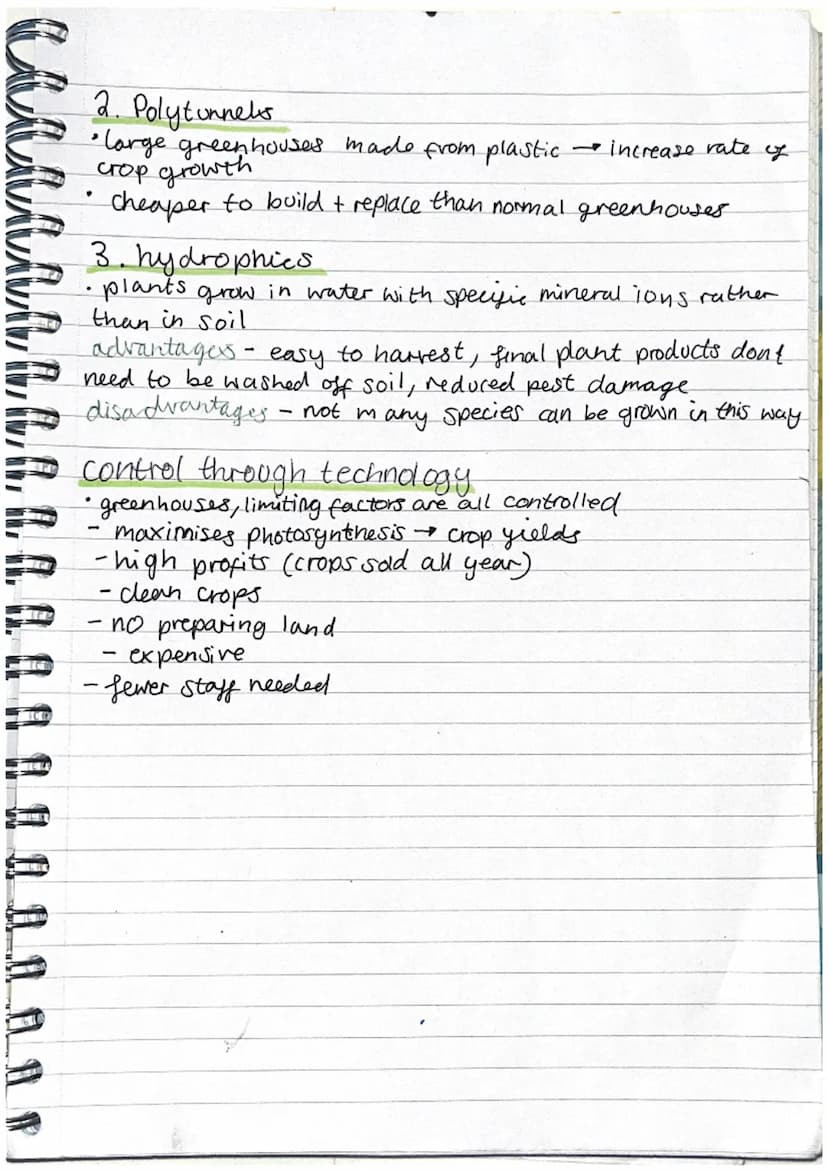 2. Polytunnels
• large greenhouses made from plastic → increase rate of
crop growth
• cheaper to build + replace than normal greenhouses
3. hydrophics
• plants grow in water with specific mineral ions rather
than in soil
advantages - easy to harvest, final plant products dont
need to be washed off soil, reduced pest damage
disadvantages - not many species can be grown in this way
control through technology
• greenhouses, limiting factors are all controlled
- maximises photosynthesis → crop yields
- high profits (crops sold all year)
- clean crops
- no preparing land
- expensive
- fewer staff needed